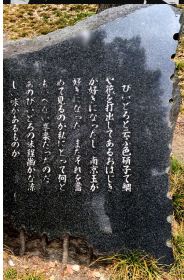 びいどろという色硝子で鯛
や花を打出してあるおはじき
が好きになったし 南京玉が
好きになった またそれを嘗
めて見るのが私にとって何と
もいえない享楽だったのだ
あのびいどろの味程幽かな涼
しい味があるものか